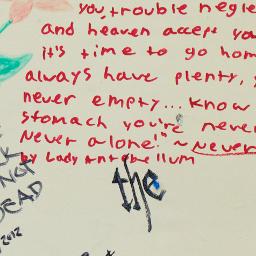 you, trouble negle
and heaven accept yo
it's time to go hom
always have plenty,
never empty... know
stomach you're never
Never alone!" ~ Never
by Lady Antebellum
the
NOT
DEAD
2012